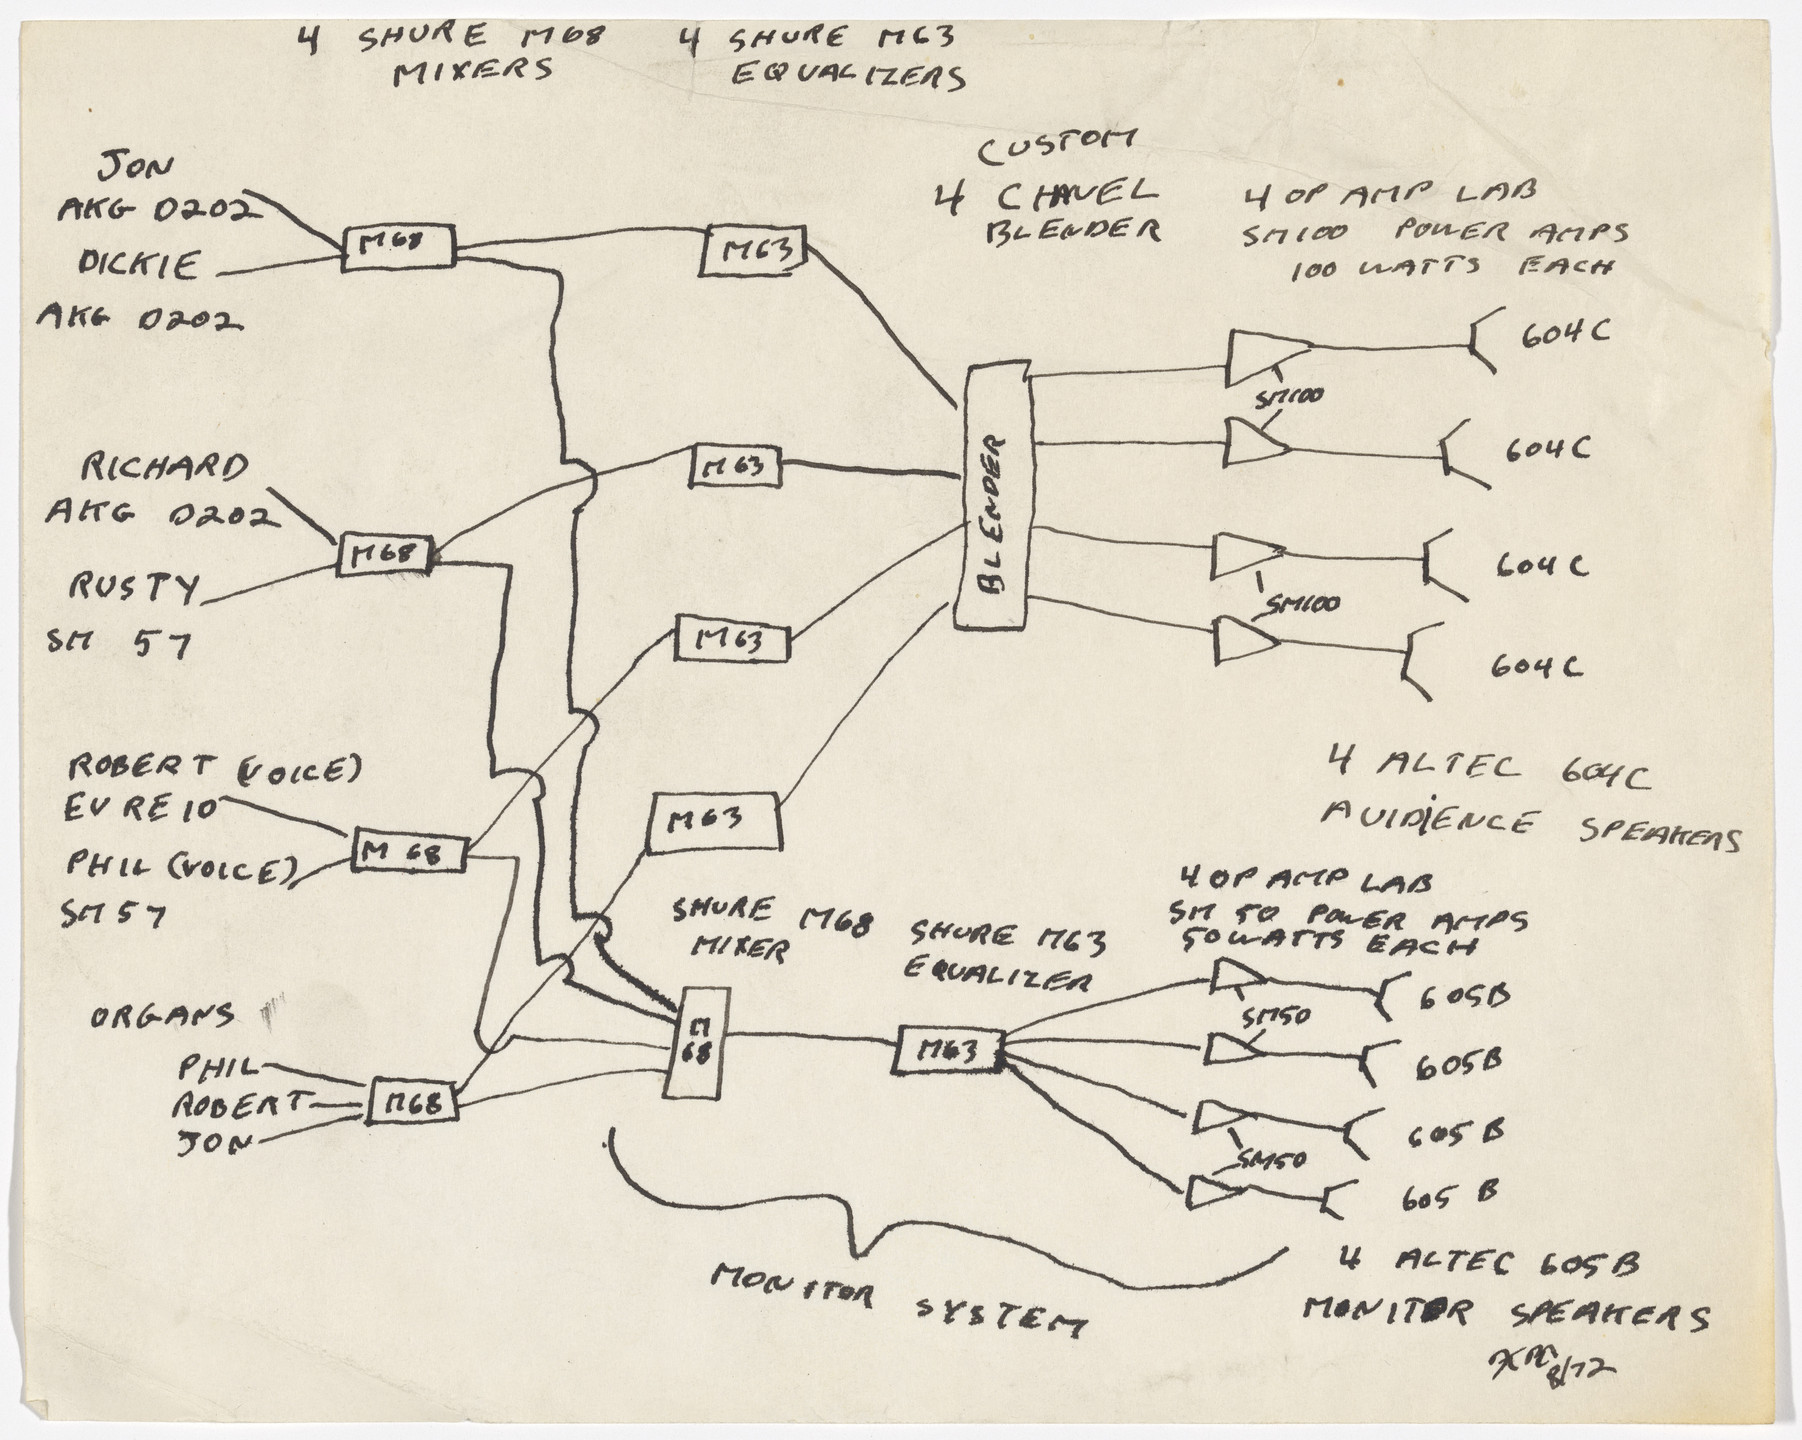 4 SHURE M68 4 SHURE M63
MIXERS EQUALIZERS
CUSTOM
4 CHANEL
BLENDER
4 OP AMP LAB
SM100 POWER AMPS
100 WATTS EACH
JON
AKG D202
DICKIE
AKG D202
M68
M63
RICHARD
AKG D202
RUSTY
SM 57
M68
M63
M63
BLENDER
604C
SM100
604C
604C
SM100
604C
ROBERT (VOICE)
EV RE10
PHIL (VOICE)
SM57
M68
M63
4 ALTEC 604C
AUIDIENCE SPEAKERS
ORGANS
PHIL
ROBERT
JON
M68
SHURE M68
MIXER
M
68
SHURE M63
EQUALIZER
M63
4 OP AMP LAB
SM 50 POWER AMPS
50 WATTS EACH
605B
SM50
605B
605B
SM50
605B
MONITOR SYSTEM
4 ALTEC 605B
MONITOR SPEAKERS
8/72